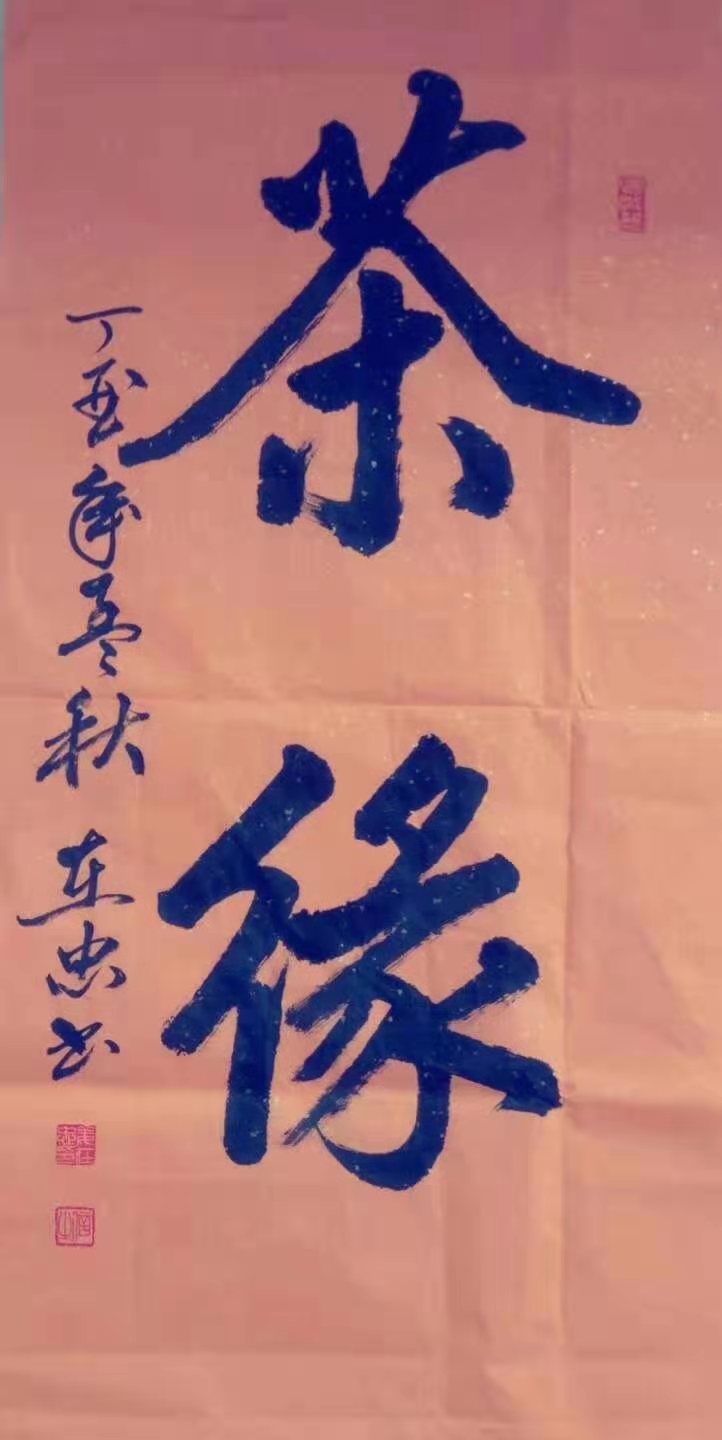 茶缘
丁酉年孟秋 在忠书